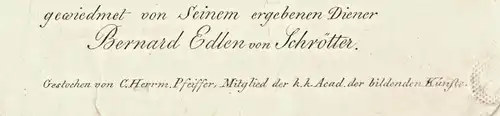 gewiedmet von Seinem ergebenen Diener
Bernard Edlen von Schrötter.
Gestochen von C. Herrm. Pfeiffer, Mitglied der k.k. Acad. der bildenden Künste.